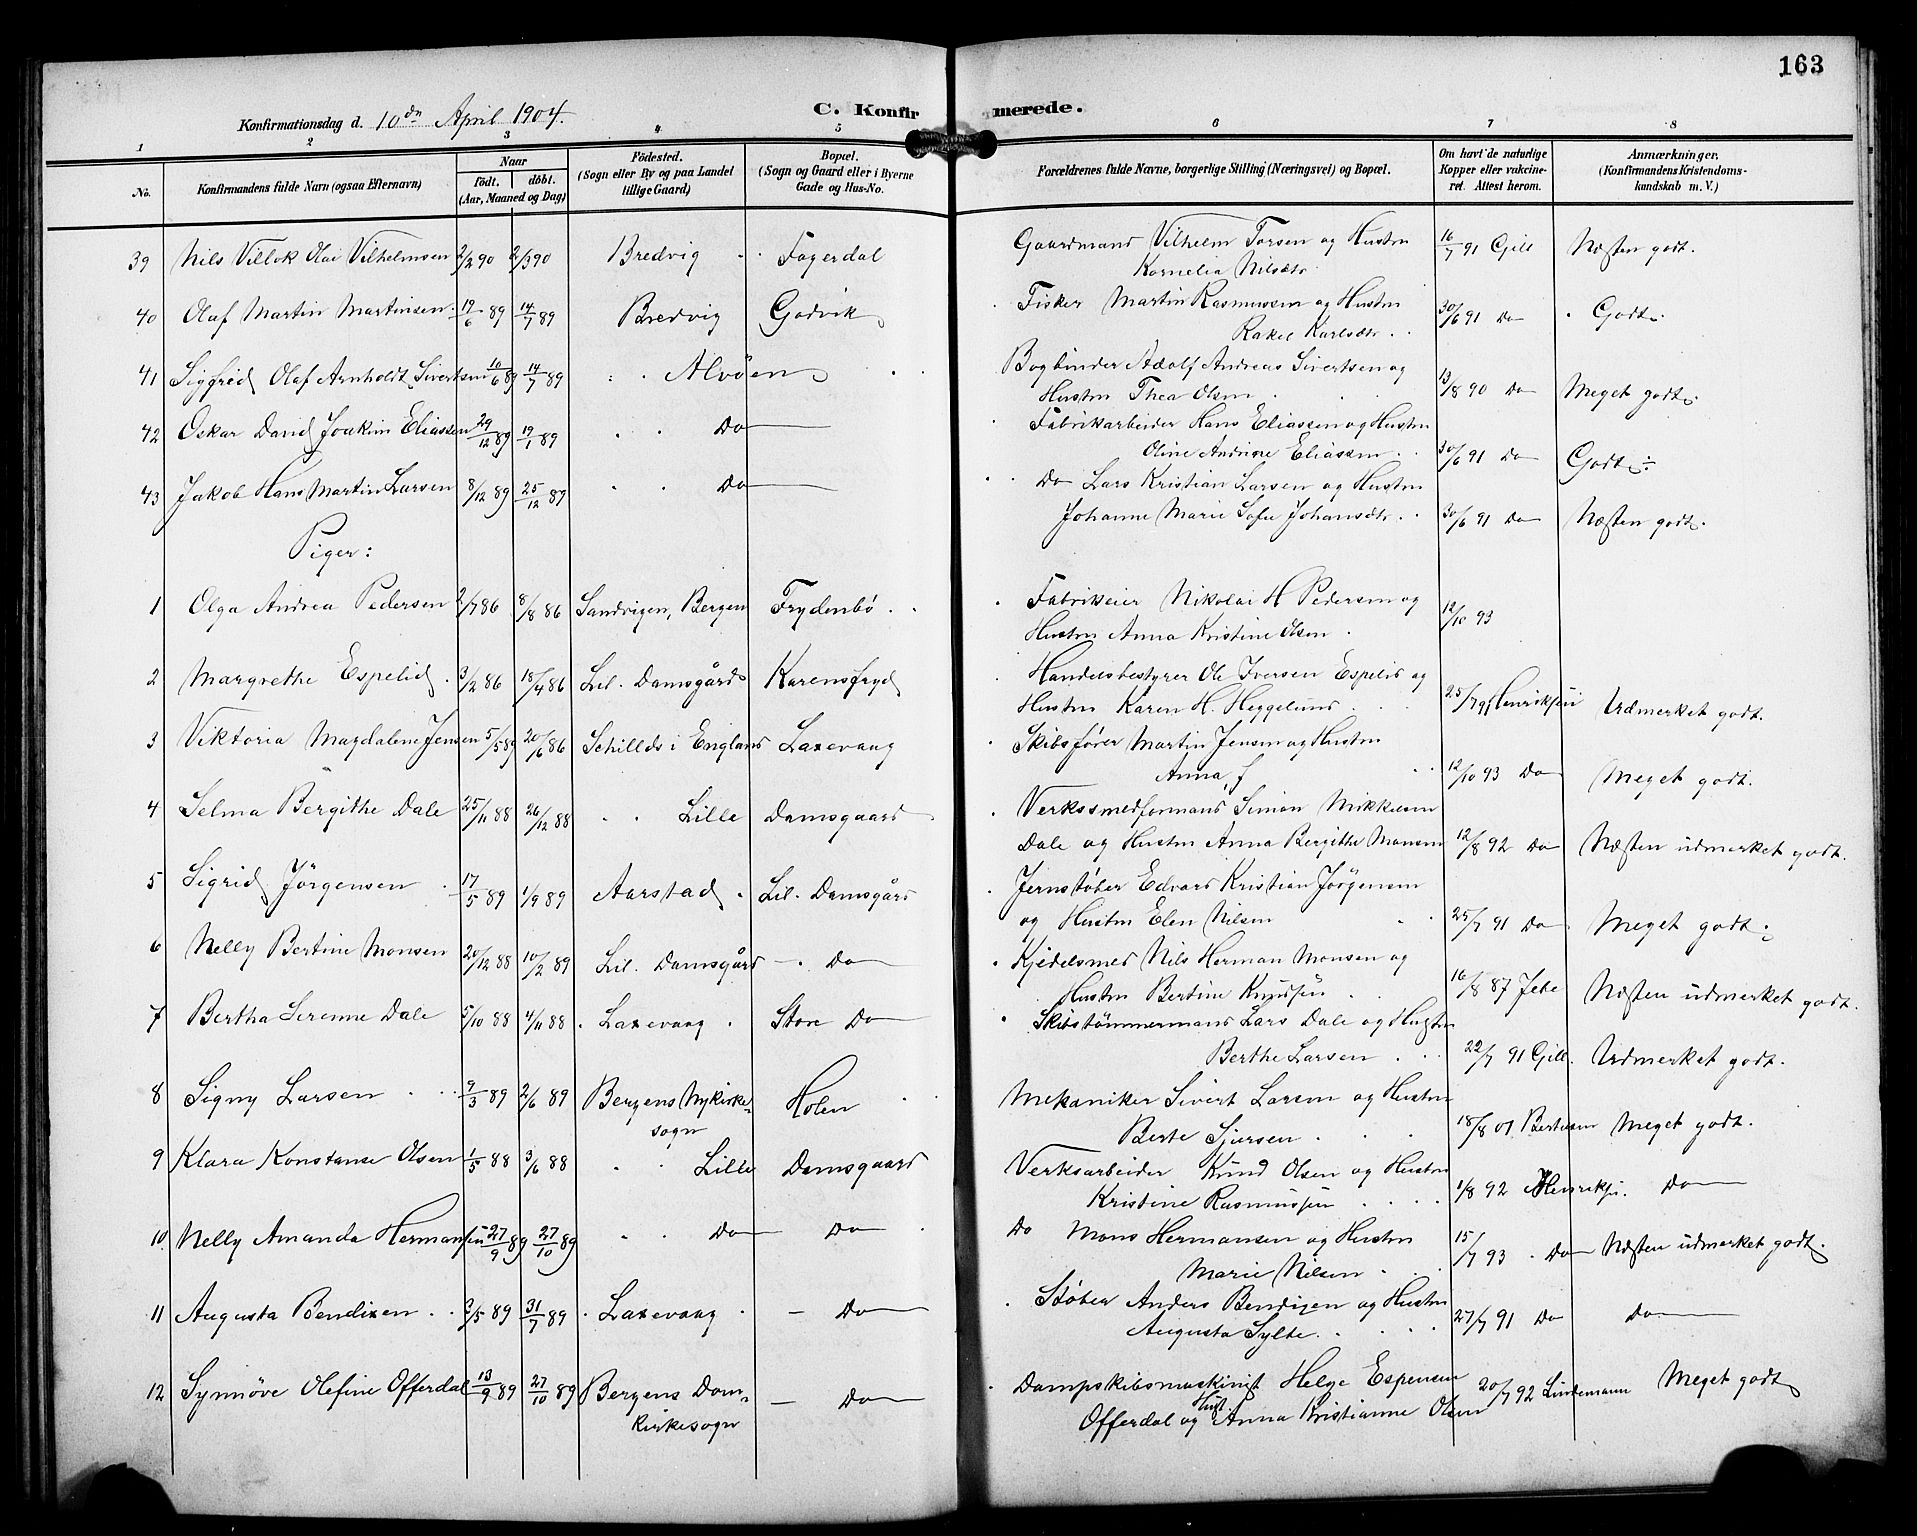 163
Konfirmationsdag d. 10de April 1904.
C. Konfirmerede.
1 2 3 4 5 6 7 8
No. Konfirmandens fulde Navn (ogsaa Efternavn) Naar födt. döbt. (Aar, Maaned og Dag) Födested. (Sogn eller By og paa Landet tillige Gaard) Bopæl. (Sogn og Gaard eller i Byerne Gade og Hus-No. Forældrenes fulde Navne, borgerlige Stilling (Næringsvei) og Bopæl. Om havt de naturlige Kopper eller vakcineret. Attest herom. Anmærkninger. (Konfirmandens Kristendomskundskab m. V.)
39 Nils Villok Olai Vilhelmsen 2/2 90 2/3 90 Bredvig Fagerdal Gaardmand Vilhelm Torsen og Hustru 16/7 91 Gill Næsten godt.
Kornelia Nilsdtr.
40 Olaf Martin Martinsen 19/6 89 14/7 89 Bredvig Godvik Fisker Martin Rasmussen og Hustru 30/6 91 Do Godt.
Rakel Karlsdtr.
41 Sigfred Olaf Arnholdt Sivertsen 10/6 89 14/7 89 Alvöen Bogbinder Adolf Andreas Sivertsen og
Hustru Thea Olsen 13/8 90 Do Meget godt.
42 Oskar David Joakim Eliassen 29/12 89 19/1 89 Do Fabrikarbeider Hans Eliassen og Hustru
Oline Andrine Eliassen 30/6 91 Do Godt ÷
43 Jakob Hans Martin Larsen 8/12 89 25/12 89 Do Do Lars Kristian Larsen og Hustru
Johanne Marie Sofie Johansdtr. 30/6 91 Do Næsten godt.
Piger:
1 Olga Andrea Pedersen 2/7 86 8/8 86 Sandvigen, Bergen Frydenbö Fabrikeier Nikolai H Pedersen og
Hustru Anna Kristine Olsen 12/10 93
2 Margrethe Espelid 3/2 86 18/4 86 Lil. Damsgård Karensfryd Handelsbestyrer Ole Iversen Espelid og
Hustru Karen H. Heggelund 25/7 91 Henriksen Udmerket godt.
3 Viktoria Magdalene Jensen 5/5 89 20/6 86 Schillds i England Laxevaag Skibsfører Martin Jensen og Hustru
Anna f 12/10 93 Do Meget godt.
4 Selma Bergithe Dale 25/11 88 26/12 88 Lille Damsgaard Verkssmedformand Simon Mikkelsen
Dale og Hustru Anna Bergithe Monsen 12/8 92 Do Næsten udmerket godt.
5 Sigrid Jörgensen 17/5 89 1/9 89 Aarstad Lil. Damsgård Jernstøber Edvard Kristian Jörgensen
og Hustru Elen Nilsen 25/7 91 Do Meget godt.
6 Nelly Bertine Monsen 20/12 88 10/2 89 Lil. Damsgård Do Kjedelsmed Nils Herman Monsen og
Hustru Bertine Knudsen 16/8 87 Jebe Næsten udmerket godt.
7 Bertha Serenne Dale 5/10 88 4/11 88 Laxevaag Store Do Skibstömmermand Lars Dale og Hustru
Berthe Larsen 22/7 91 Gill. Udmerket godt.
8 Signy Larsen 9/3 89 2/6 89 Bergens Nykirkesogn Holen Mekaniker Sivert Larsen og Hustru
Berte Sjursen 18/8 01 Bertesen Meget godt.
9 Klara Konstanse Olsen 1/5 88 3/6 88 Lille Damsgaard Verksarbeider Knud Olsen og Hustru
Kristine Rasmussen 1/8 92 Henriksen. Do
10. Nelly Amanda Hermansen 27/9 89 27/10 89 Do Do Do Mons Hermansen og Hustru
Marie Nilsen 15/7 93 Do Næsten udmerket godt.
11 Augusta Bendixen 3/5 89 31/7 89 Laxevaag Do Støber Anders Bendixen og Hustru
Augusta Sylte 27/7 91 Do Do
12 Synnöve Olefine Offerdal 13/9 89 27/10 89 Bergens Domkirkesogn Do Dampskibsmaskinist Helge Espensen
Offerdal og Hust. Anna Kristianne Olsen 20/7 92 Lindemann Meget godt